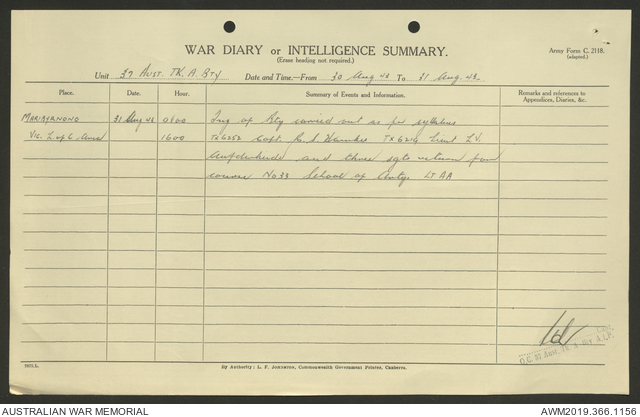 WAR DIARY or INTELLIGENCE SUMMARY.
(Erase heading not required.)
Army Form C. 2118.
(adapted.)
Unit 37 Aust. TK. A. Bty Date and Time.—From 30 Aug 43 To 31 Aug. 43.
Place. Date. Hour. Summary of Events and Information. Remarks and references to Appendices, Diaries, &c.
MARIBYRNONG 31 Aug 43 0800 Tng of Bty carried out as per syllabus
Vic. L of C Area 1600 TX6252 Capt. TX6219 Lieut L.V.
and three sgts return from
course No 33 School of Arty. LT AA
Capt.
O.C. 37 Aust. Tk. A. Bty A.I.F.
By Authority: L. F. Johnston, Commonwealth Government Printer, Canberra.
AUSTRALIAN WAR MEMORIAL
AWM2019.366.1156